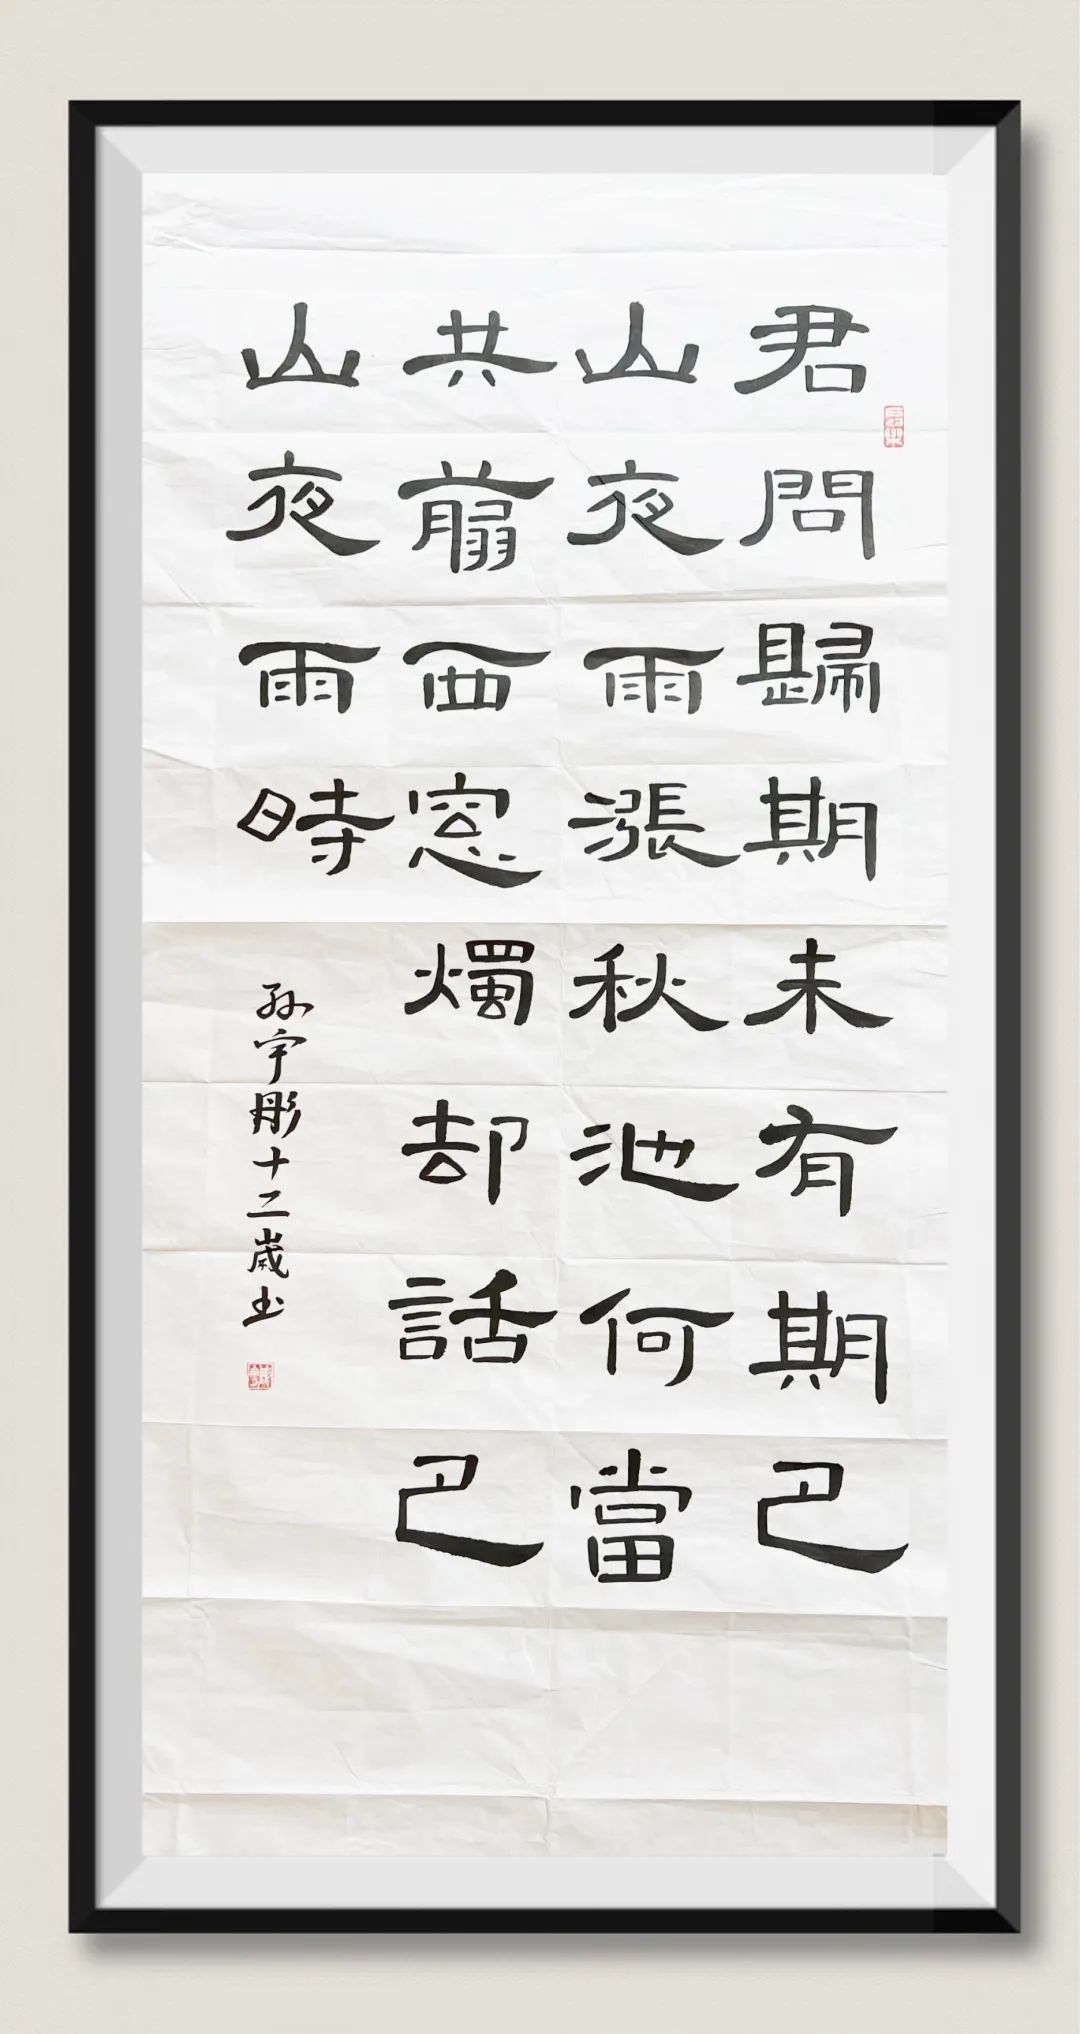 君問歸期未有期巴
山夜雨漲秋池何當
共翦西窓燭却話巴
山夜雨時
孙宇彤十二歲书